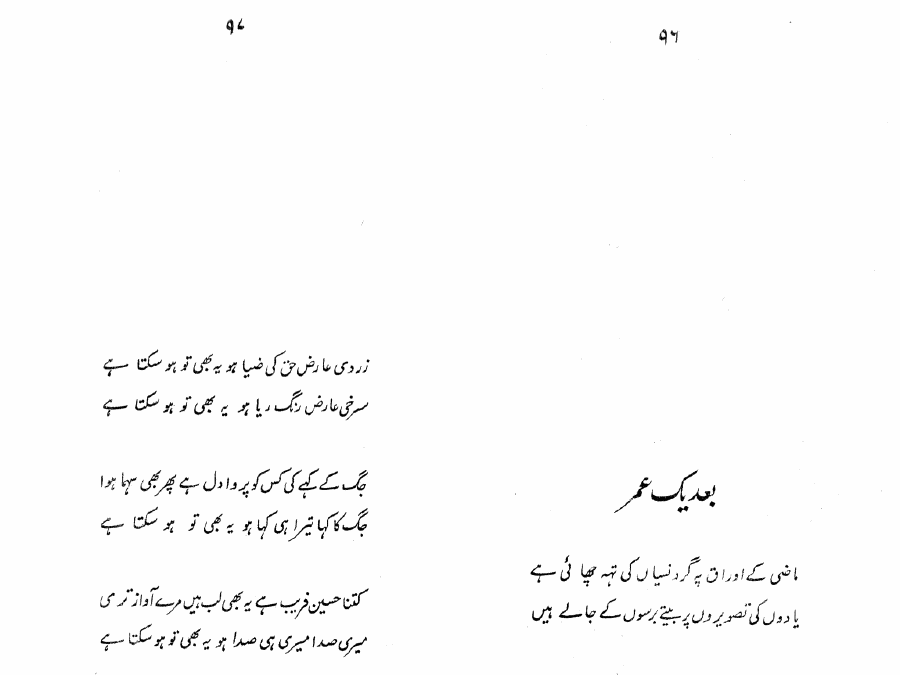 ۹۶
بعد یک عمر
ماضی کے اوراق پہ گرد نسیاں کی تہہ چھائی ہے
یادوں کی تصویروں پر بیتے برسوں کے جالے ہیں
۹۷
زردی عارض حق کی ضیا ہو یہ بھی تو ہو سکتا ہے
سرخی عارض رنگ ریا ہو یہ بھی تو ہو سکتا ہے
جگ کے کہے کی کس کو پروا دل ہے پھر بھی سہما ہوا
جگ کا کہا تیرا ہی کہا ہو یہ بھی تو ہو سکتا ہے
کتنا حسین فریب ہے یہ بھی لب ہیں مرے آواز تری
میری صدا میری ہی صدا ہو یہ بھی تو ہو سکتا ہے